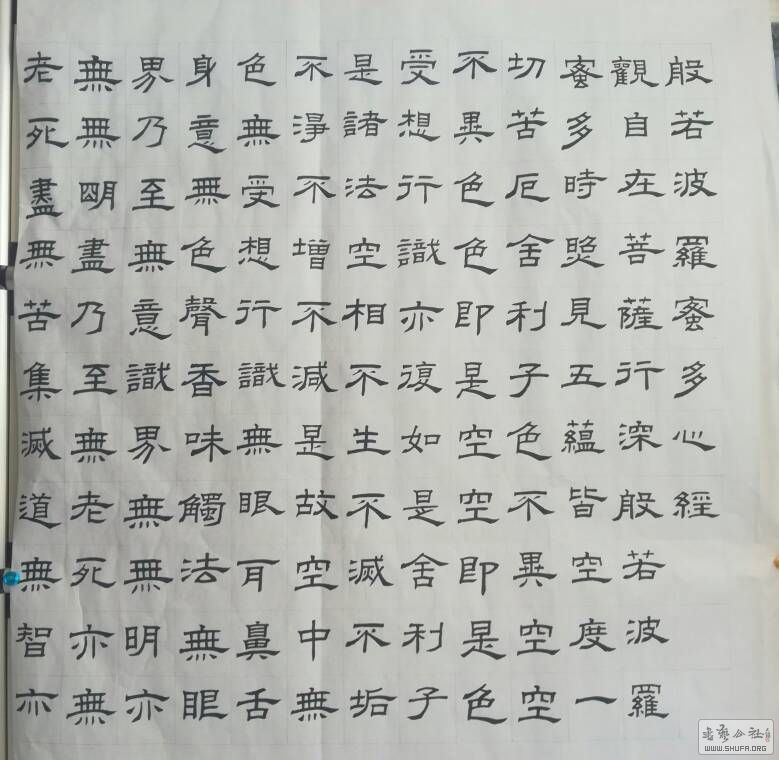 般若波羅蜜多心經
觀自在菩薩行深般若波羅
蜜多時照見五蘊皆空度一
切苦厄舍利子色不異空空
不異色色即是空空即是色
受想行識亦復如是舍利子
是諸法空相不生不滅不垢
不淨不增不減是故空中無
色無受想行識無眼耳鼻舌
身意無色聲香味觸法無眼
界乃至無意識界無無明亦
無無明盡乃至無老死亦無
老死盡無苦集滅道無智亦
書藝公社
WWW.SHUFA.ORG